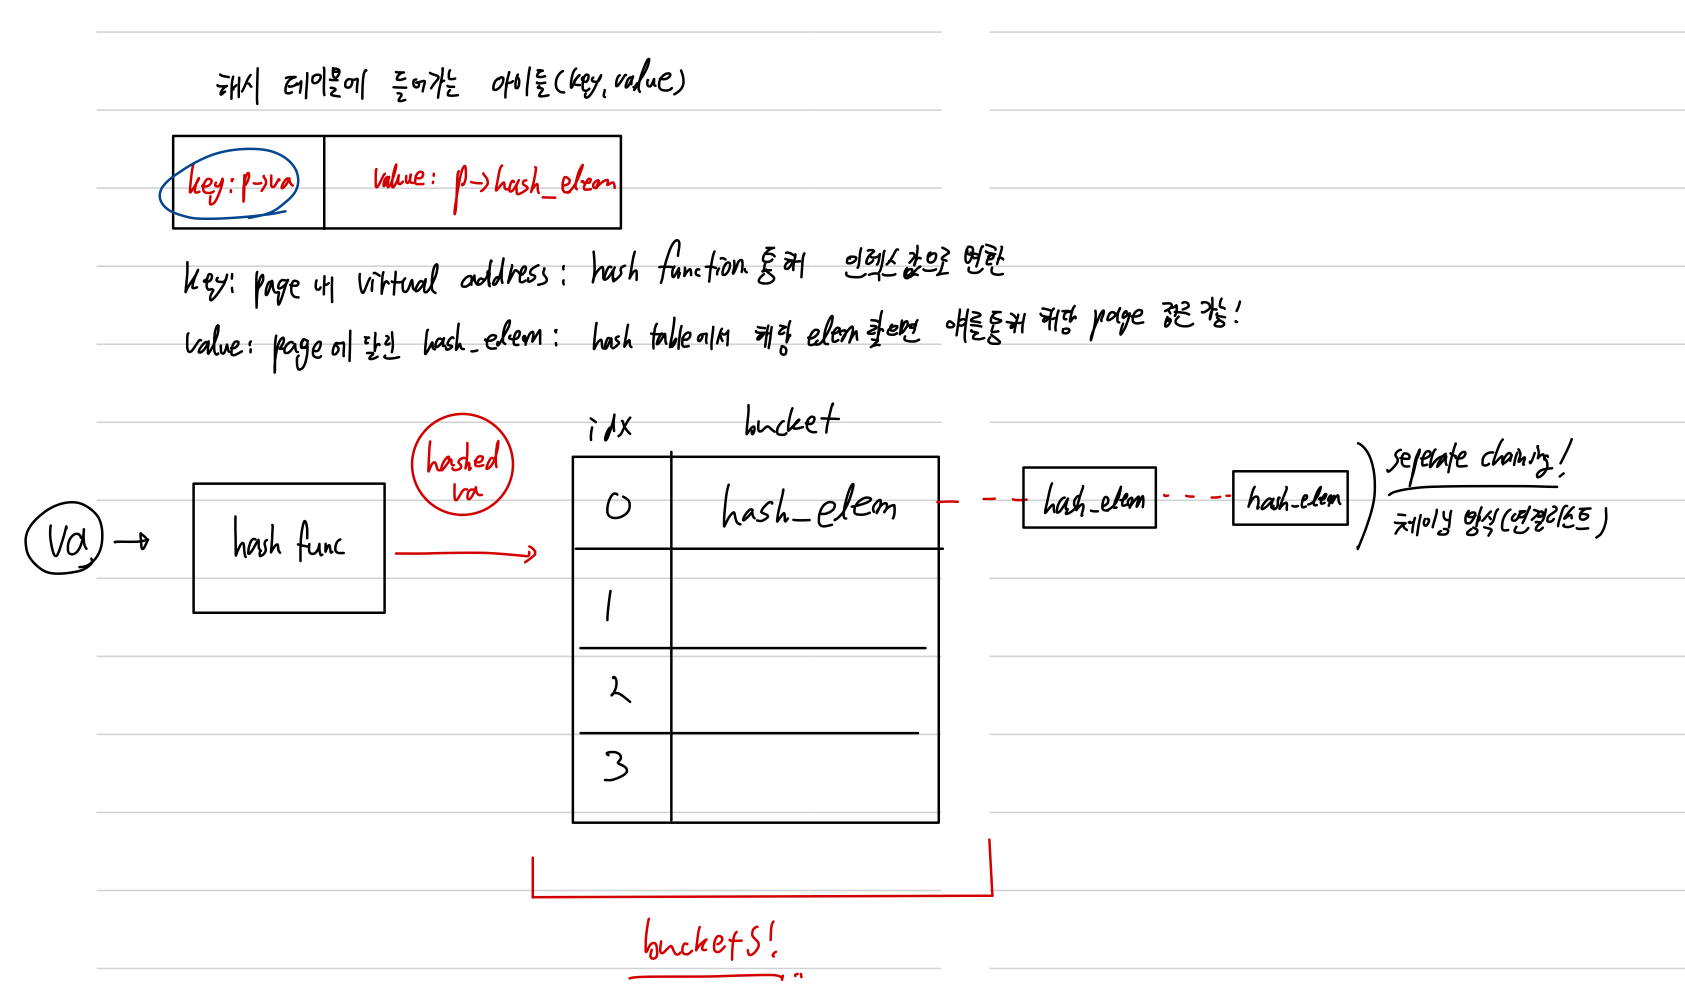 해시 테이블에 들어가는 아이들(key, value)
key: p->va
value: p->hash_elem
key: page 내 virtual address : hash function 통해 인덱스 값으로 변환
value: page에 달린 hash_elem : hash table에서 해당 elem 찾으면 얘를 통해 해당 page 접근 가능!
idx
bucket
va
hash func
hashed
va
0
hash_elem
hash_elem
hash_elem
seperate chaining!
체이닝 방식(연결리스트)
1
2
3
buckets!